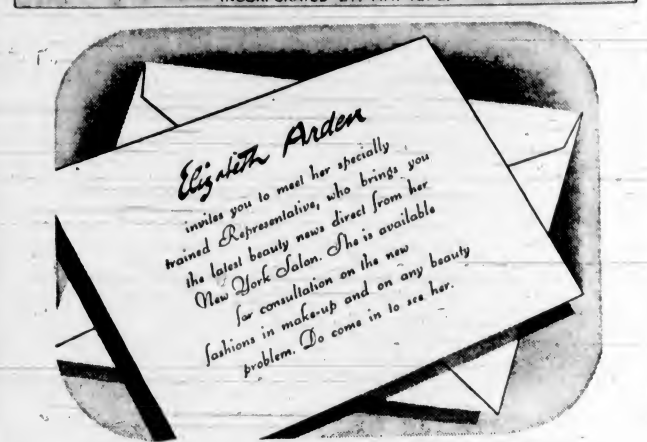 INCORPORATED 2ND MAY 1670.
Elizabeth Arden
invites you to meet her specially
trained Representative, who brings you
the latest beauty news direct from her
New York Salon. She is available
for consultation on the new
fashions in make-up and on any beauty
problem. Do come in to see her.